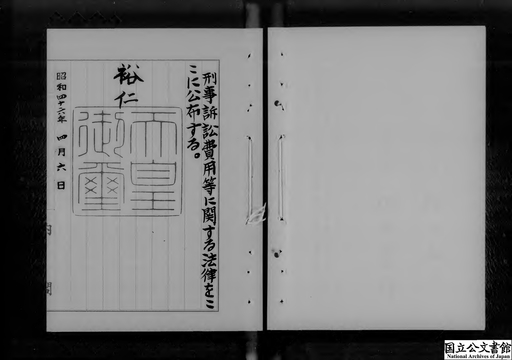 刑事訴訟費用等に関する法律をこ
こに公布する。
裕仁
天皇
御璽
昭和四十六年 四月 六日
内閣
国立公文書館
National Archives of Japan